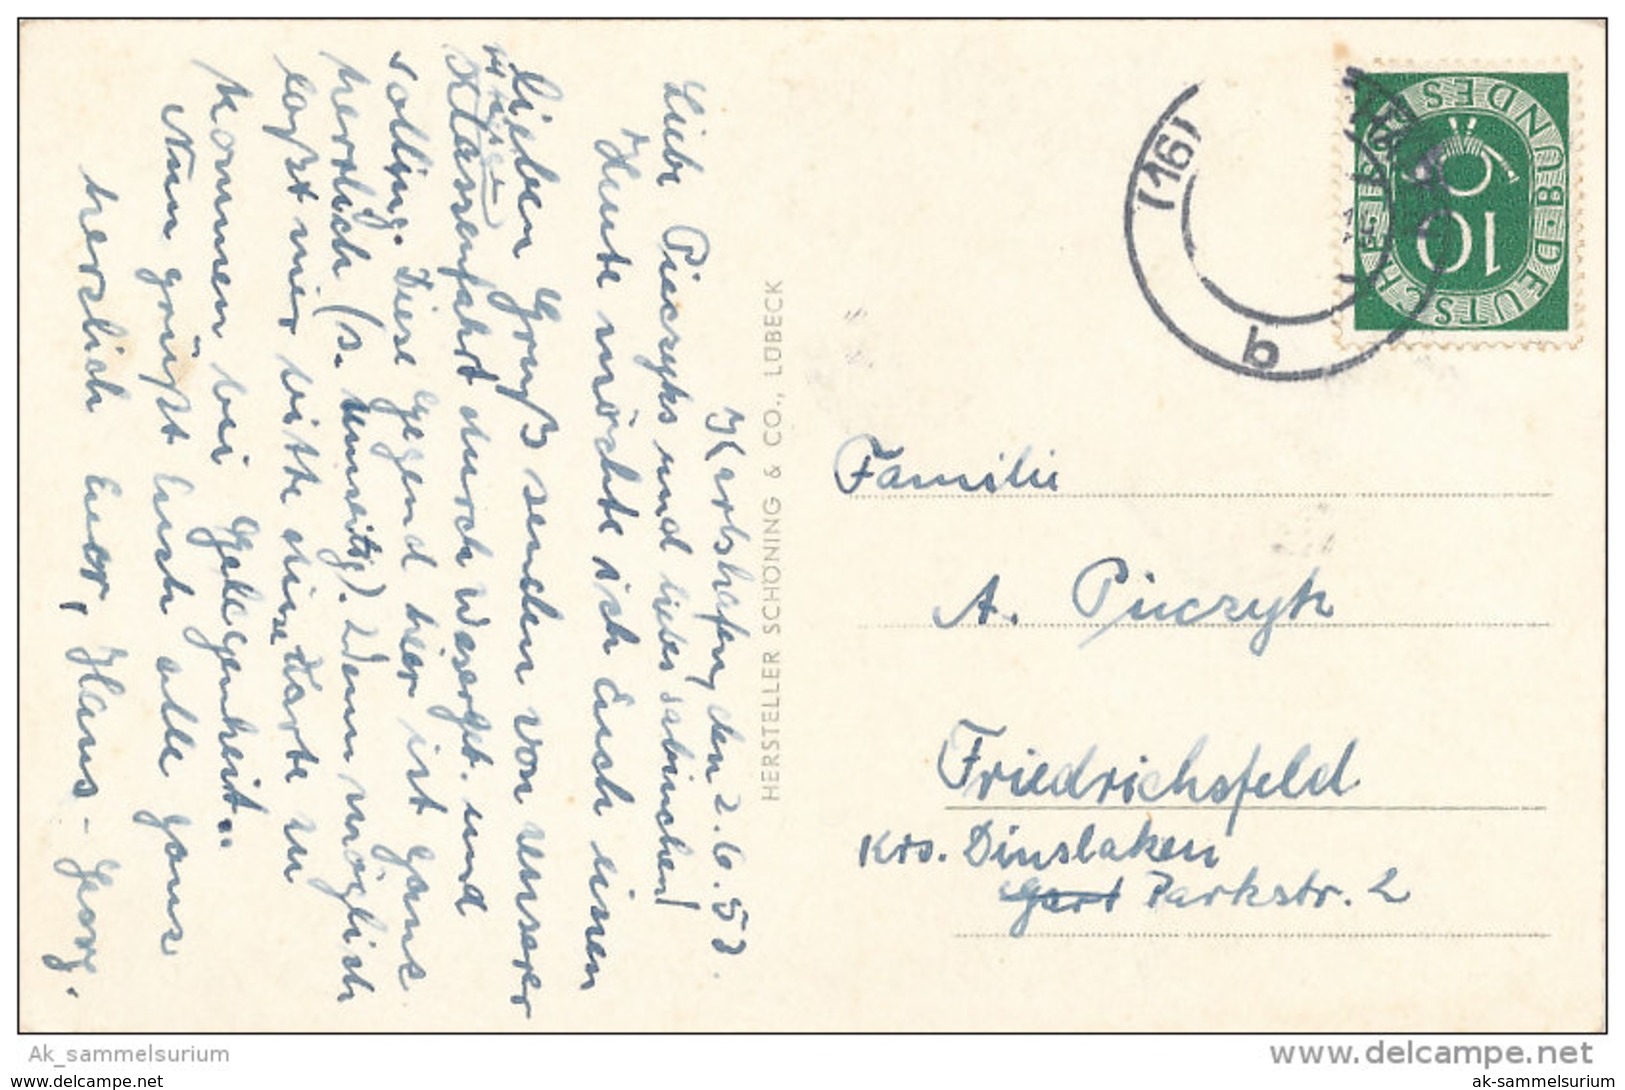 Karlshafen, den 2.6.53.
Liebe Pieczyks und liebes Sabinchen!
Heute möchte ich Euch einen
lieben Gruß senden von unserer
Klassenfahrt durch Wesergb. und
Solling. Diese Gegend hier ist ganz
herrlich (s. umseitg). Wenn möglich
laßt mir bitte diese Karte zu
kommen bei Gelegenheit.
Nun grüßt Euch alle ganz
herzlich Euer, Hans-Georg.
HERSTELLER SCHÖNING & CO., LÜBECK
(16)
b
DEUTSCHE BUNDESPOST
10
Familie
A. Pieczyk
Friedrichsfeld
Krs. Dinslaken
Parkstr. 2
Ak_sammelsurium
www.delcampe.net
www.delcampe.net
ak-sammelsurium